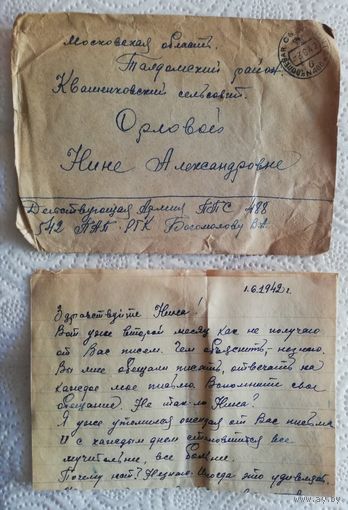 Московская область.
Талдомский район.
Квашенковский сельсовет.
Орловой
Нине Александровне
Действующая Армия ППС 488
542 ПАП-РГК Богомолову В.А.
1.6.1942 г.
Здравствуйте Нина!
Вот уже второй месяц как не получаю
от Вас писем. Чем объяснить, - не знаю.
Вы мне обещали писать, отвечать на
каждое мое письмо. Вспомните свое
обещание. Не так-ли Нина?
Я уже утомился ожидая от Вас письма
И с каждым днем становится все
мучительнее, все больнее.
Почему нет? Не знаю. Иногда это удивляет.
ay.by